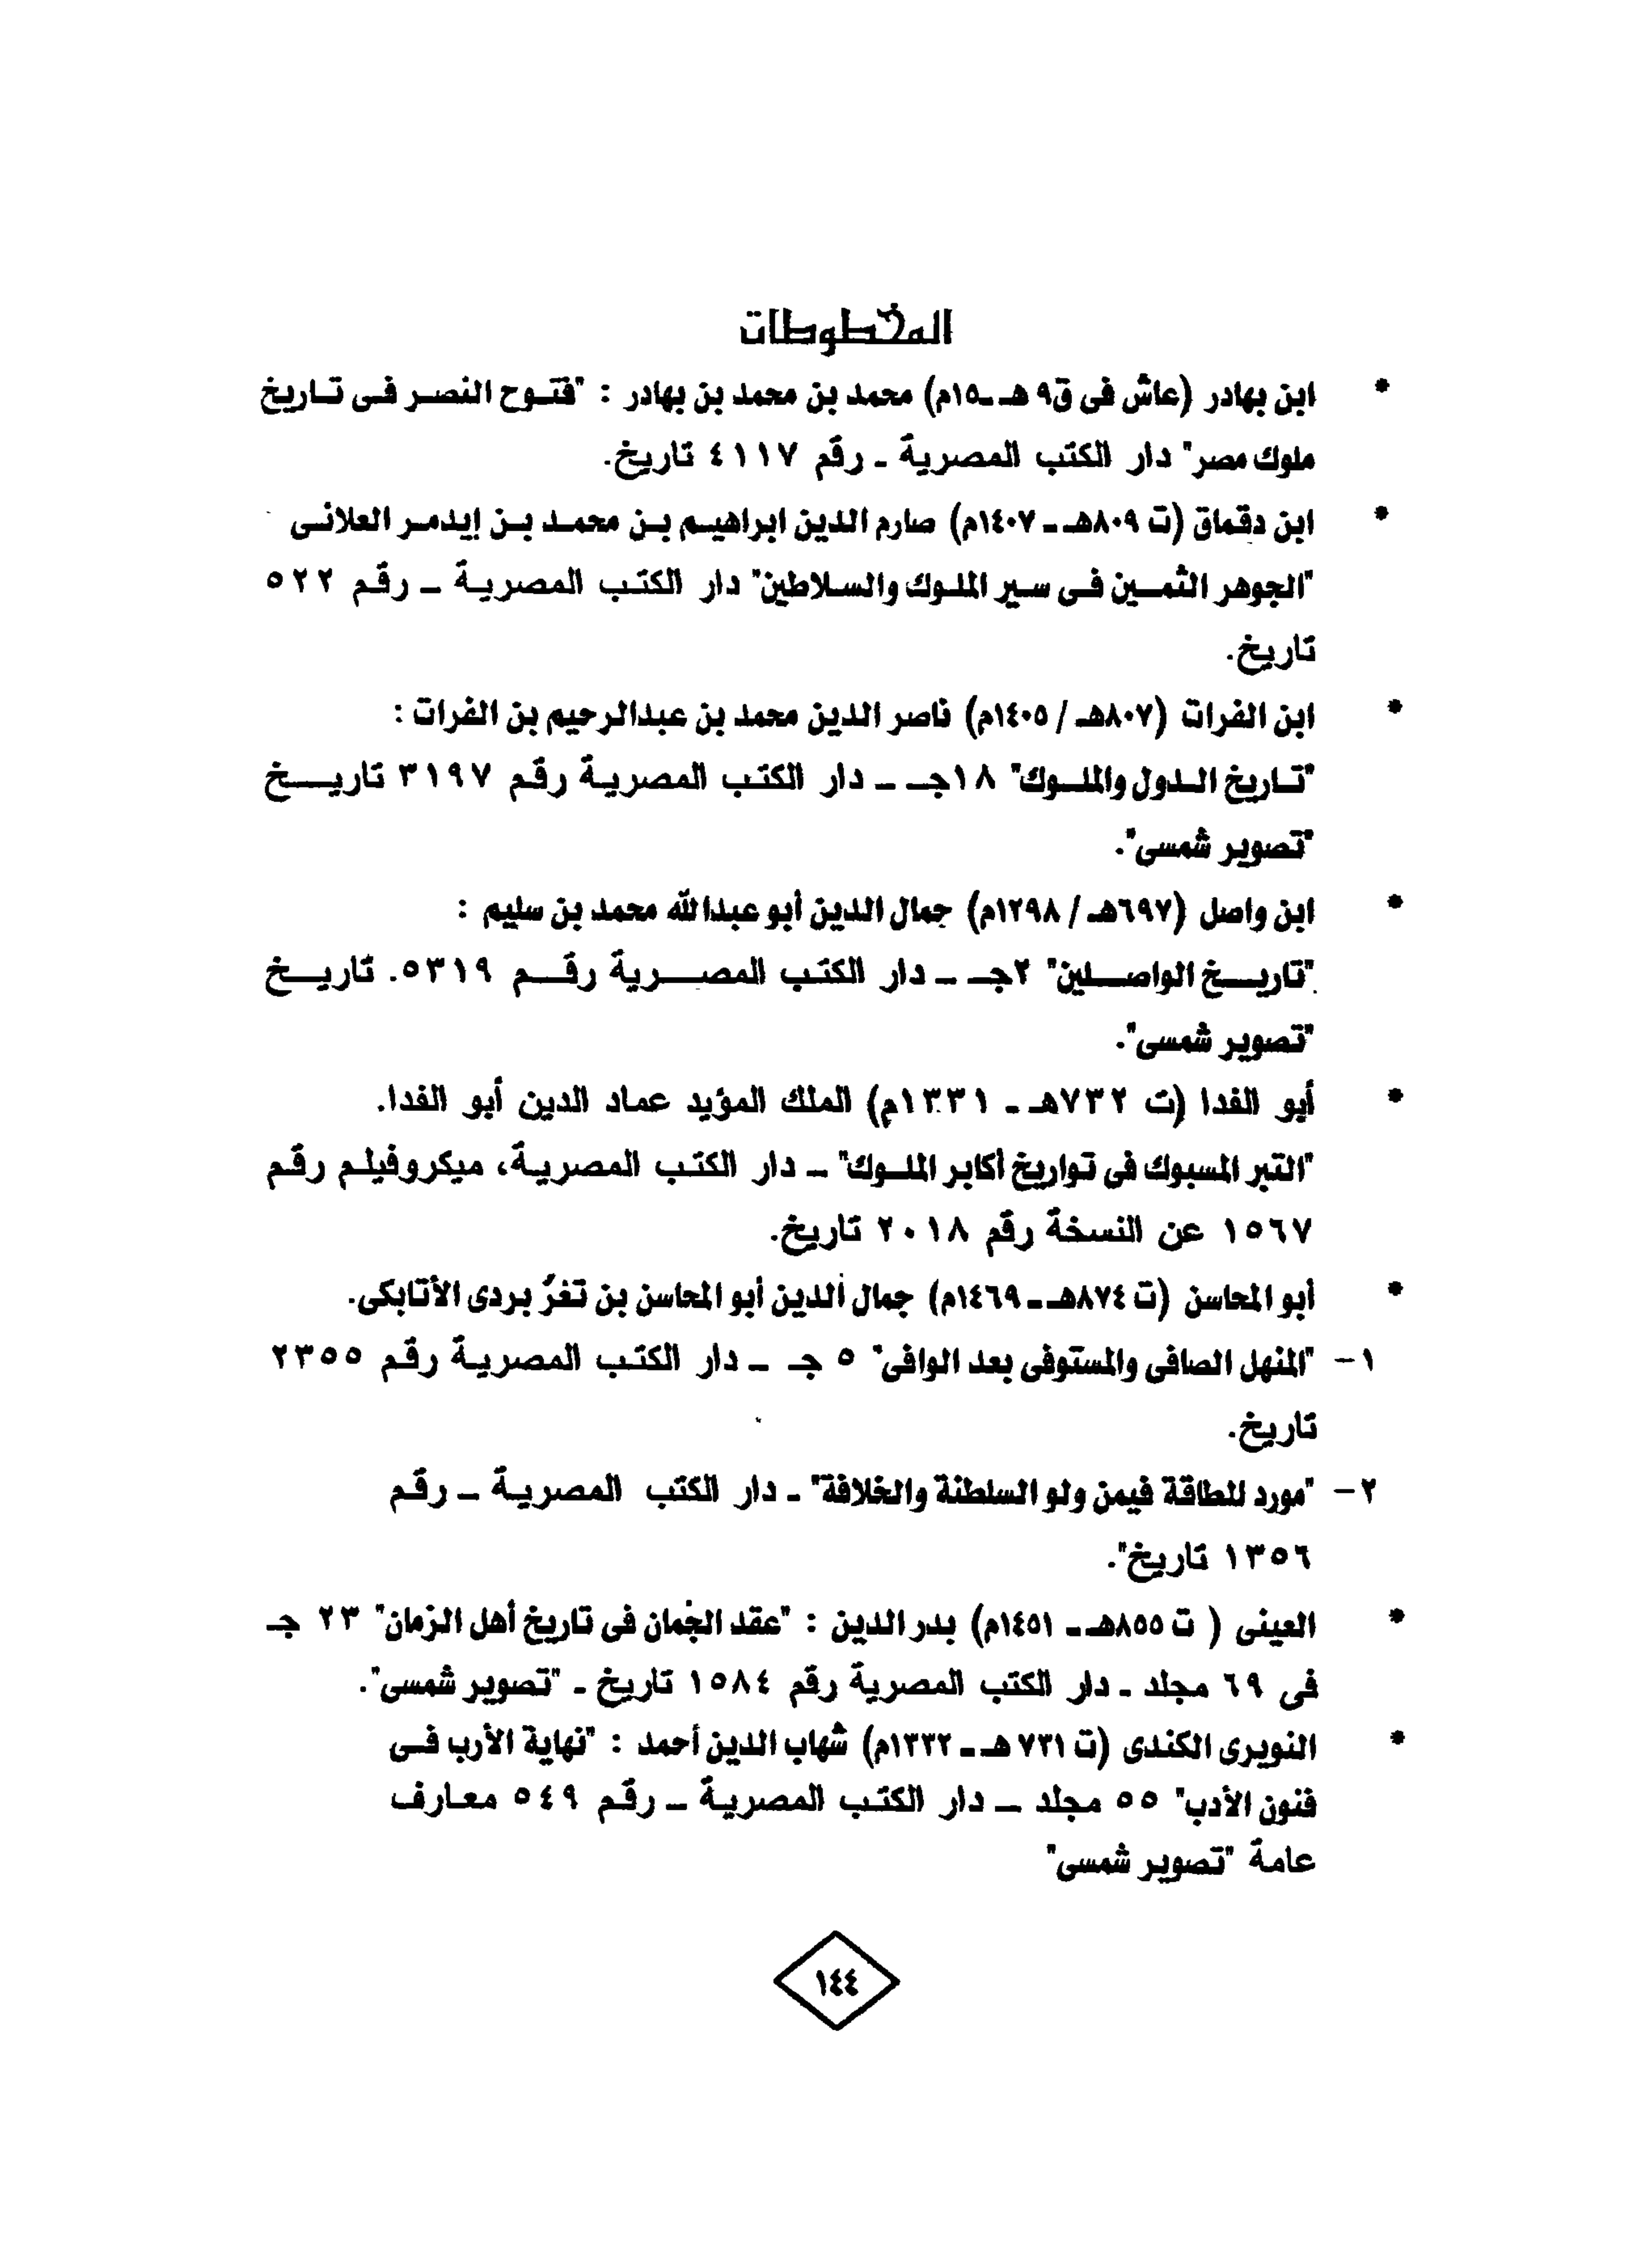 المخطوطات
* ابن بهادر (عاش فى ق٩ هـ ـ١٥م) محمد بن محمد بن بهادر : "فتوح النصر فى تاريخ
ملوك مصر" دار الكتب المصرية ـ رقم ٤١١٧ تاريخ.
* ابن دقماق (ت ٨٠٩هـ ـ ١٤٠٧م) صارم الدين ابراهيم بن محمد بن إيدمر العلانى
"الجوهر الثمين فى سير الملوك والسلاطين" دار الكتب المصرية ـ رقم ٥٢٢
تاريخ.
* ابن الفرات (٨٠٧هـ / ١٤٠٥م) ناصر الدين محمد بن عبدالرحيم بن الفرات :
"تاريخ الدول والملوك" ١٨جـ ـ دار الكتب المصرية رقم ٣١٩٧ تاريخ
"تصوير شمسى".
* ابن واصل (٦٩٧هـ / ١٢٩٨م) جمال الدين أبو عبدالله محمد بن سليم :
"تاريخ الواصلين" ٢جـ ـ دار الكتب المصرية رقم ٥٣١٩. تاريخ
"تصوير شمسى".
* أبو الفدا (ت ٧٣٢هـ ـ ١٣٣١م) الملك المؤيد عماد الدين أبو الفدا.
"التبر المسبوك فى تواريخ أكابر الملوك" ـ دار الكتب المصرية، ميكروفيلم رقم
١٥٦٧ عن النسخة رقم ٢٠١٨ تاريخ.
* أبو المحاسن (ت ٨٧٤هـ ـ ١٤٦٩م) جمال الدين أبو المحاسن بن تغرُ بردى الأتابكى.
١- "المنهل الصافى والمستوفى بعد الوافى" ٥ جـ ـ دار الكتب المصرية رقم ٢٣٥٥
تاريخ.
٢- "مورد للطاقة فيمن ولو السلطنة والخلافة" ـ دار الكتب المصرية ـ رقم
١٣٥٦ تاريخ".
* العينى ( ت ٨٥٥هـ ـ ١٤٥١م) بدر الدين : "عقد الجُمان فى تاريخ أهل الزمان" ٢٣ جـ
فى ٦٩ مجلد ـ دار الكتب المصرية رقم ١٥٨٤ تاريخ ـ "تصوير شمسى".
* النويرى الكندى (ت ٧٣١ هـ ـ ١٣٣٢م) شهاب الدين أحمد : "نهاية الأرب فى
فنون الأدب" ٥٥ مجلد ـ دار الكتب المصرية ـ رقم ٥٤٩ معارف
عامة "تصوير شمسى"
١٤٤